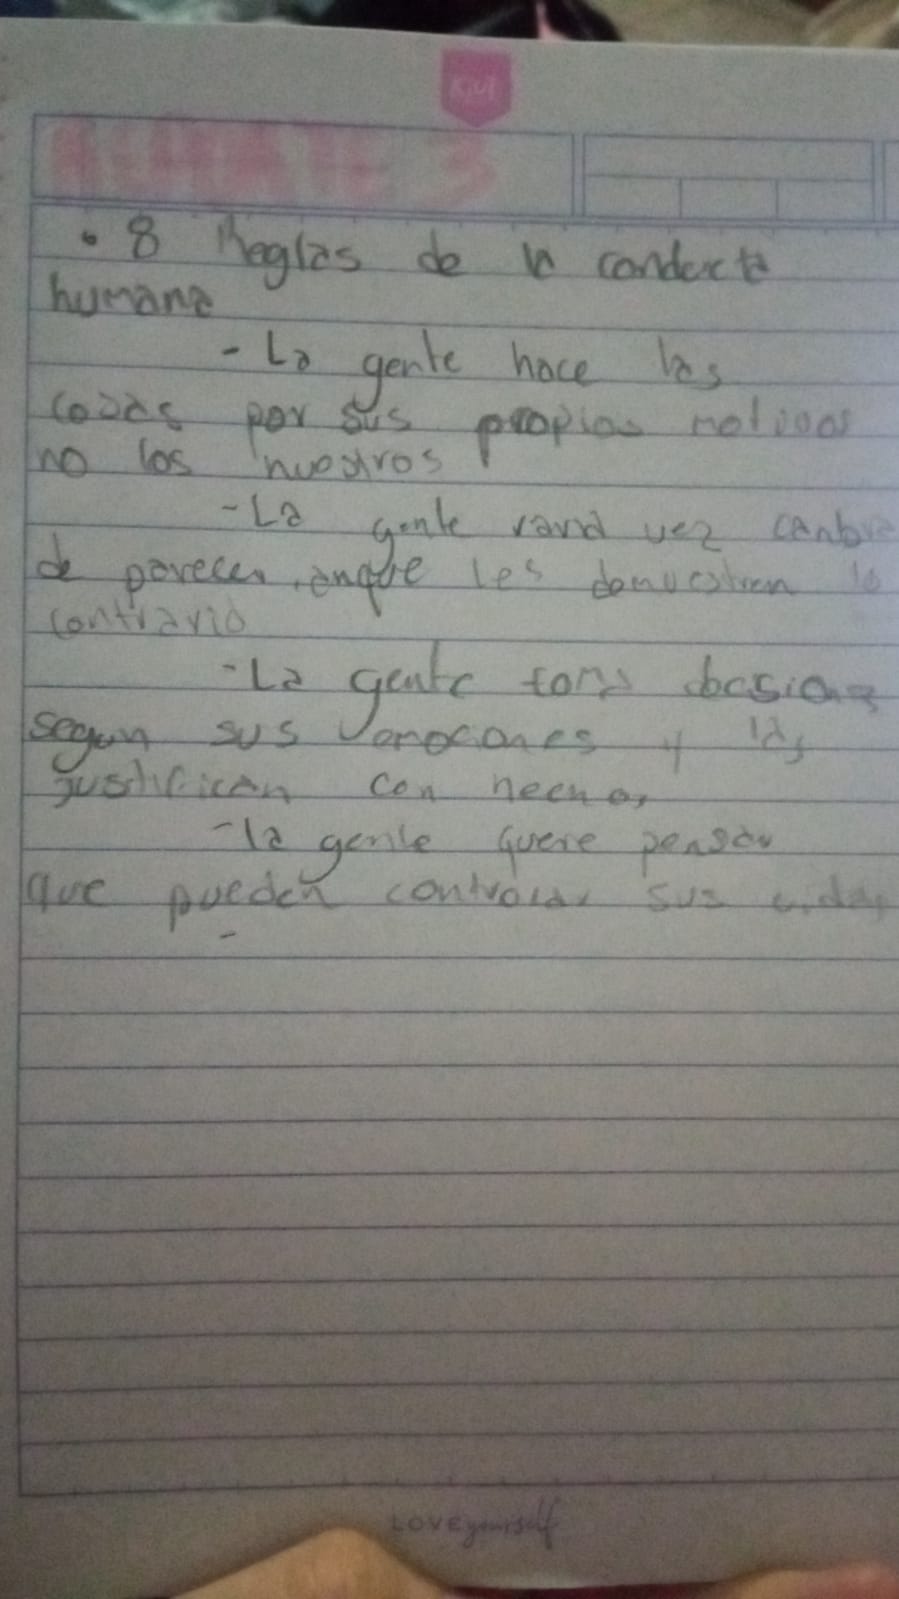 KIUT
3
• 8 Reglas de la conducta
humana
- La gente hace las
cosas por sus propios motivos
no los nuestros
- La gente rara vez canbia
de parecer, anque les demuestren lo
contrario
- La gente toma desiones
segun sus emocones y las
justifican con hechos
- la gente quere pensar
que pueden controlar sus vidas
-
LOVE yourself